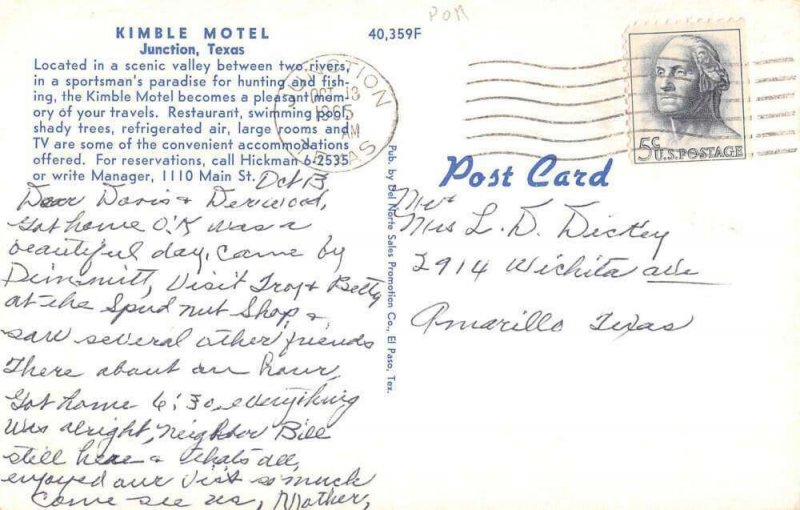 POM
KIMBLE MOTEL
Junction, Texas
40,359F
Located in a scenic valley between two rivers,
in a sportsman's paradise for hunting and fish-
ing, the Kimble Motel becomes a pleasant mem-
ory of your travels. Restaurant, swimming pool,
shady trees, refrigerated air, large rooms and
TV are some of the convenient accommodations
offered. For reservations, call Hickman 6-2535
or write Manager, 1110 Main St.
JUNCTION
OCT 13
1965
AM
TEXAS
5¢ U.S. POSTAGE
Post Card
Pub. by Del Norte Sales Promotion Co., El Paso, Tex.
Oct 13
Dear Doris & Derwood,
Got home O'K was a
beautiful day, came by
Dimmitt, Visit Troy & Betty
at the Spud nut Shop &
saw several other friends
There about an hour,
Got home 6:30, everything
was alright, neighbor Bill
still here & whats all,
enjoyed our visit so much
Come see us, Mother,
Mr &
Mrs L. D. Dickey
2914 Wichita ave
Amarillo Texas